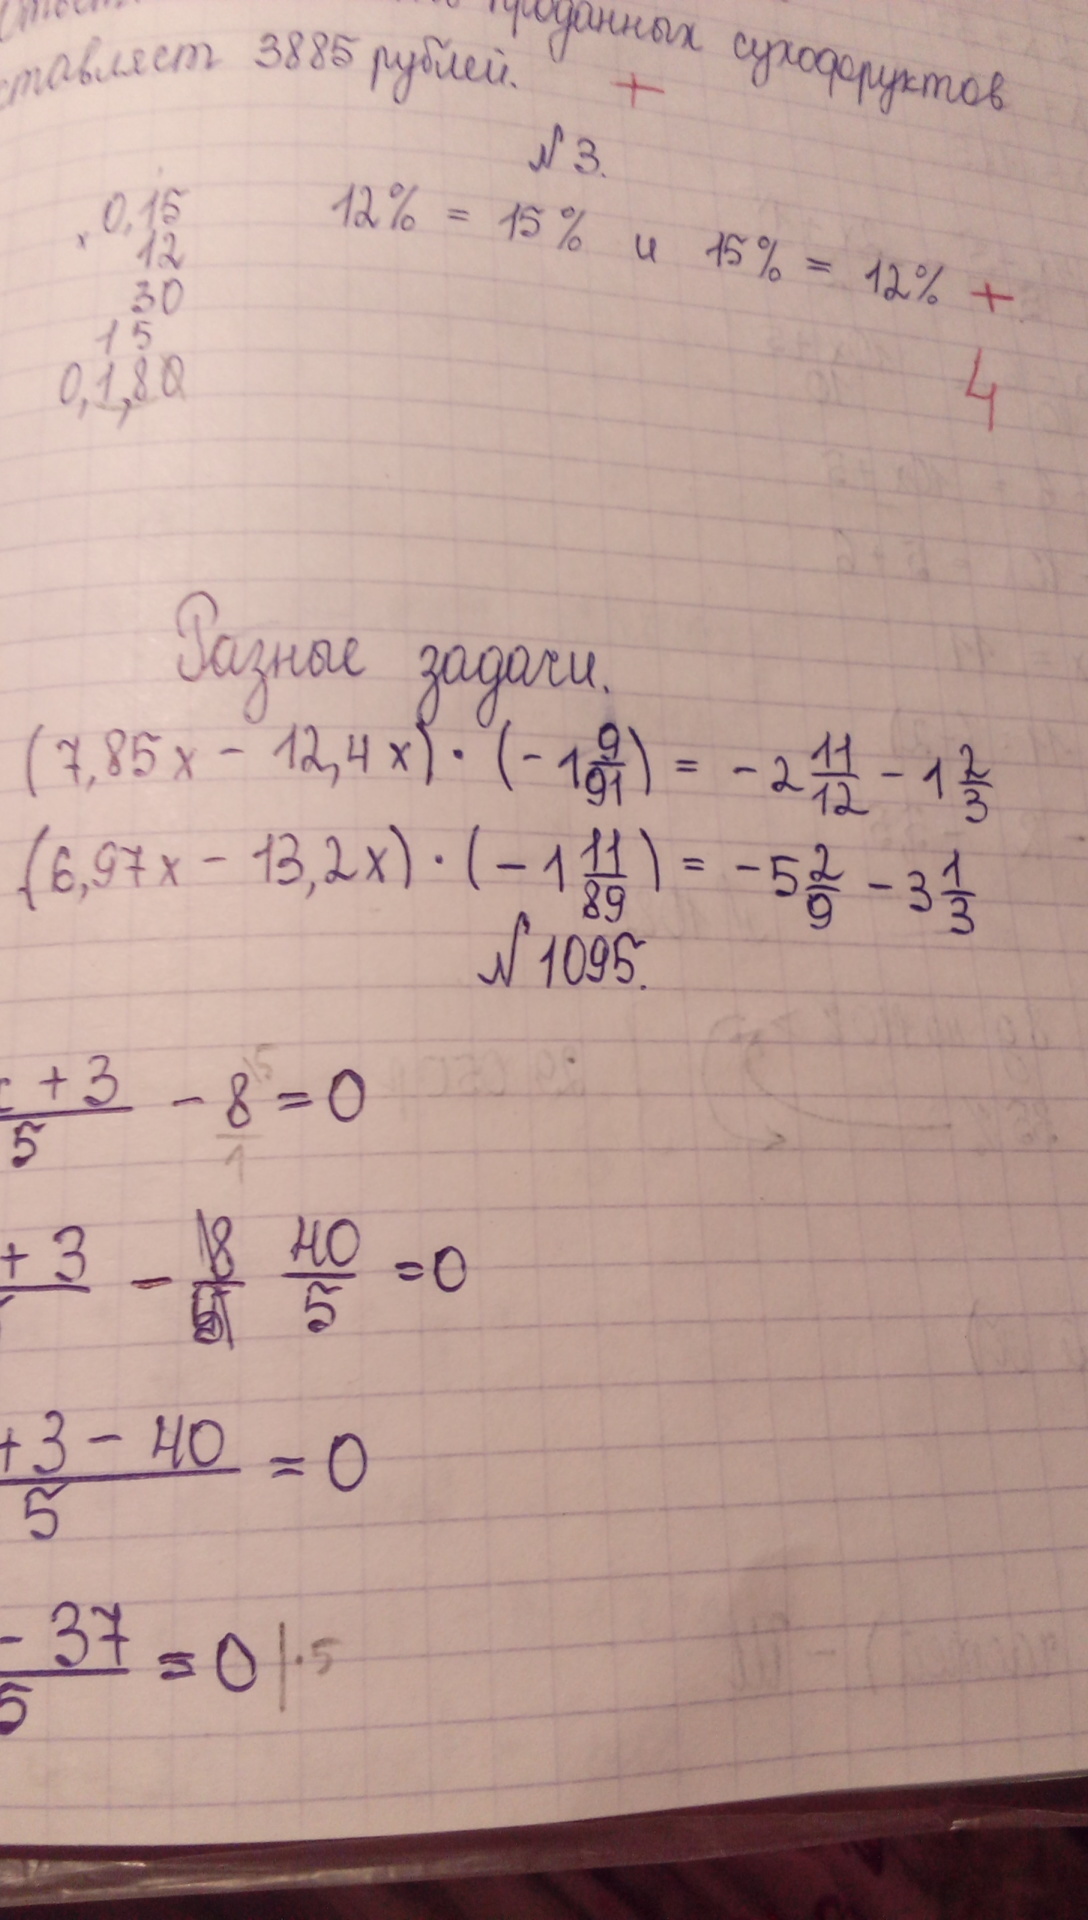 проданных сухофруктов
ставляет 3885 рублей. +
N 3.
0,15
× 12
30
15
0,1,80
12% = 15% и 15% = 12% +
4
Разные задачи.
(7,85x - 12,4x) · (-1 9/91) = -2 11/12 - 1 2/3
(6,97x - 13,2x) · (-1 11/89) = -5 2/9 - 3 1/3
N 1095.
+ 3/5 - 8/1 = 0
+ 3 - 40/5 = 0
+ 3 - 40/5 = 0
- 37/5 = 0 | · 5